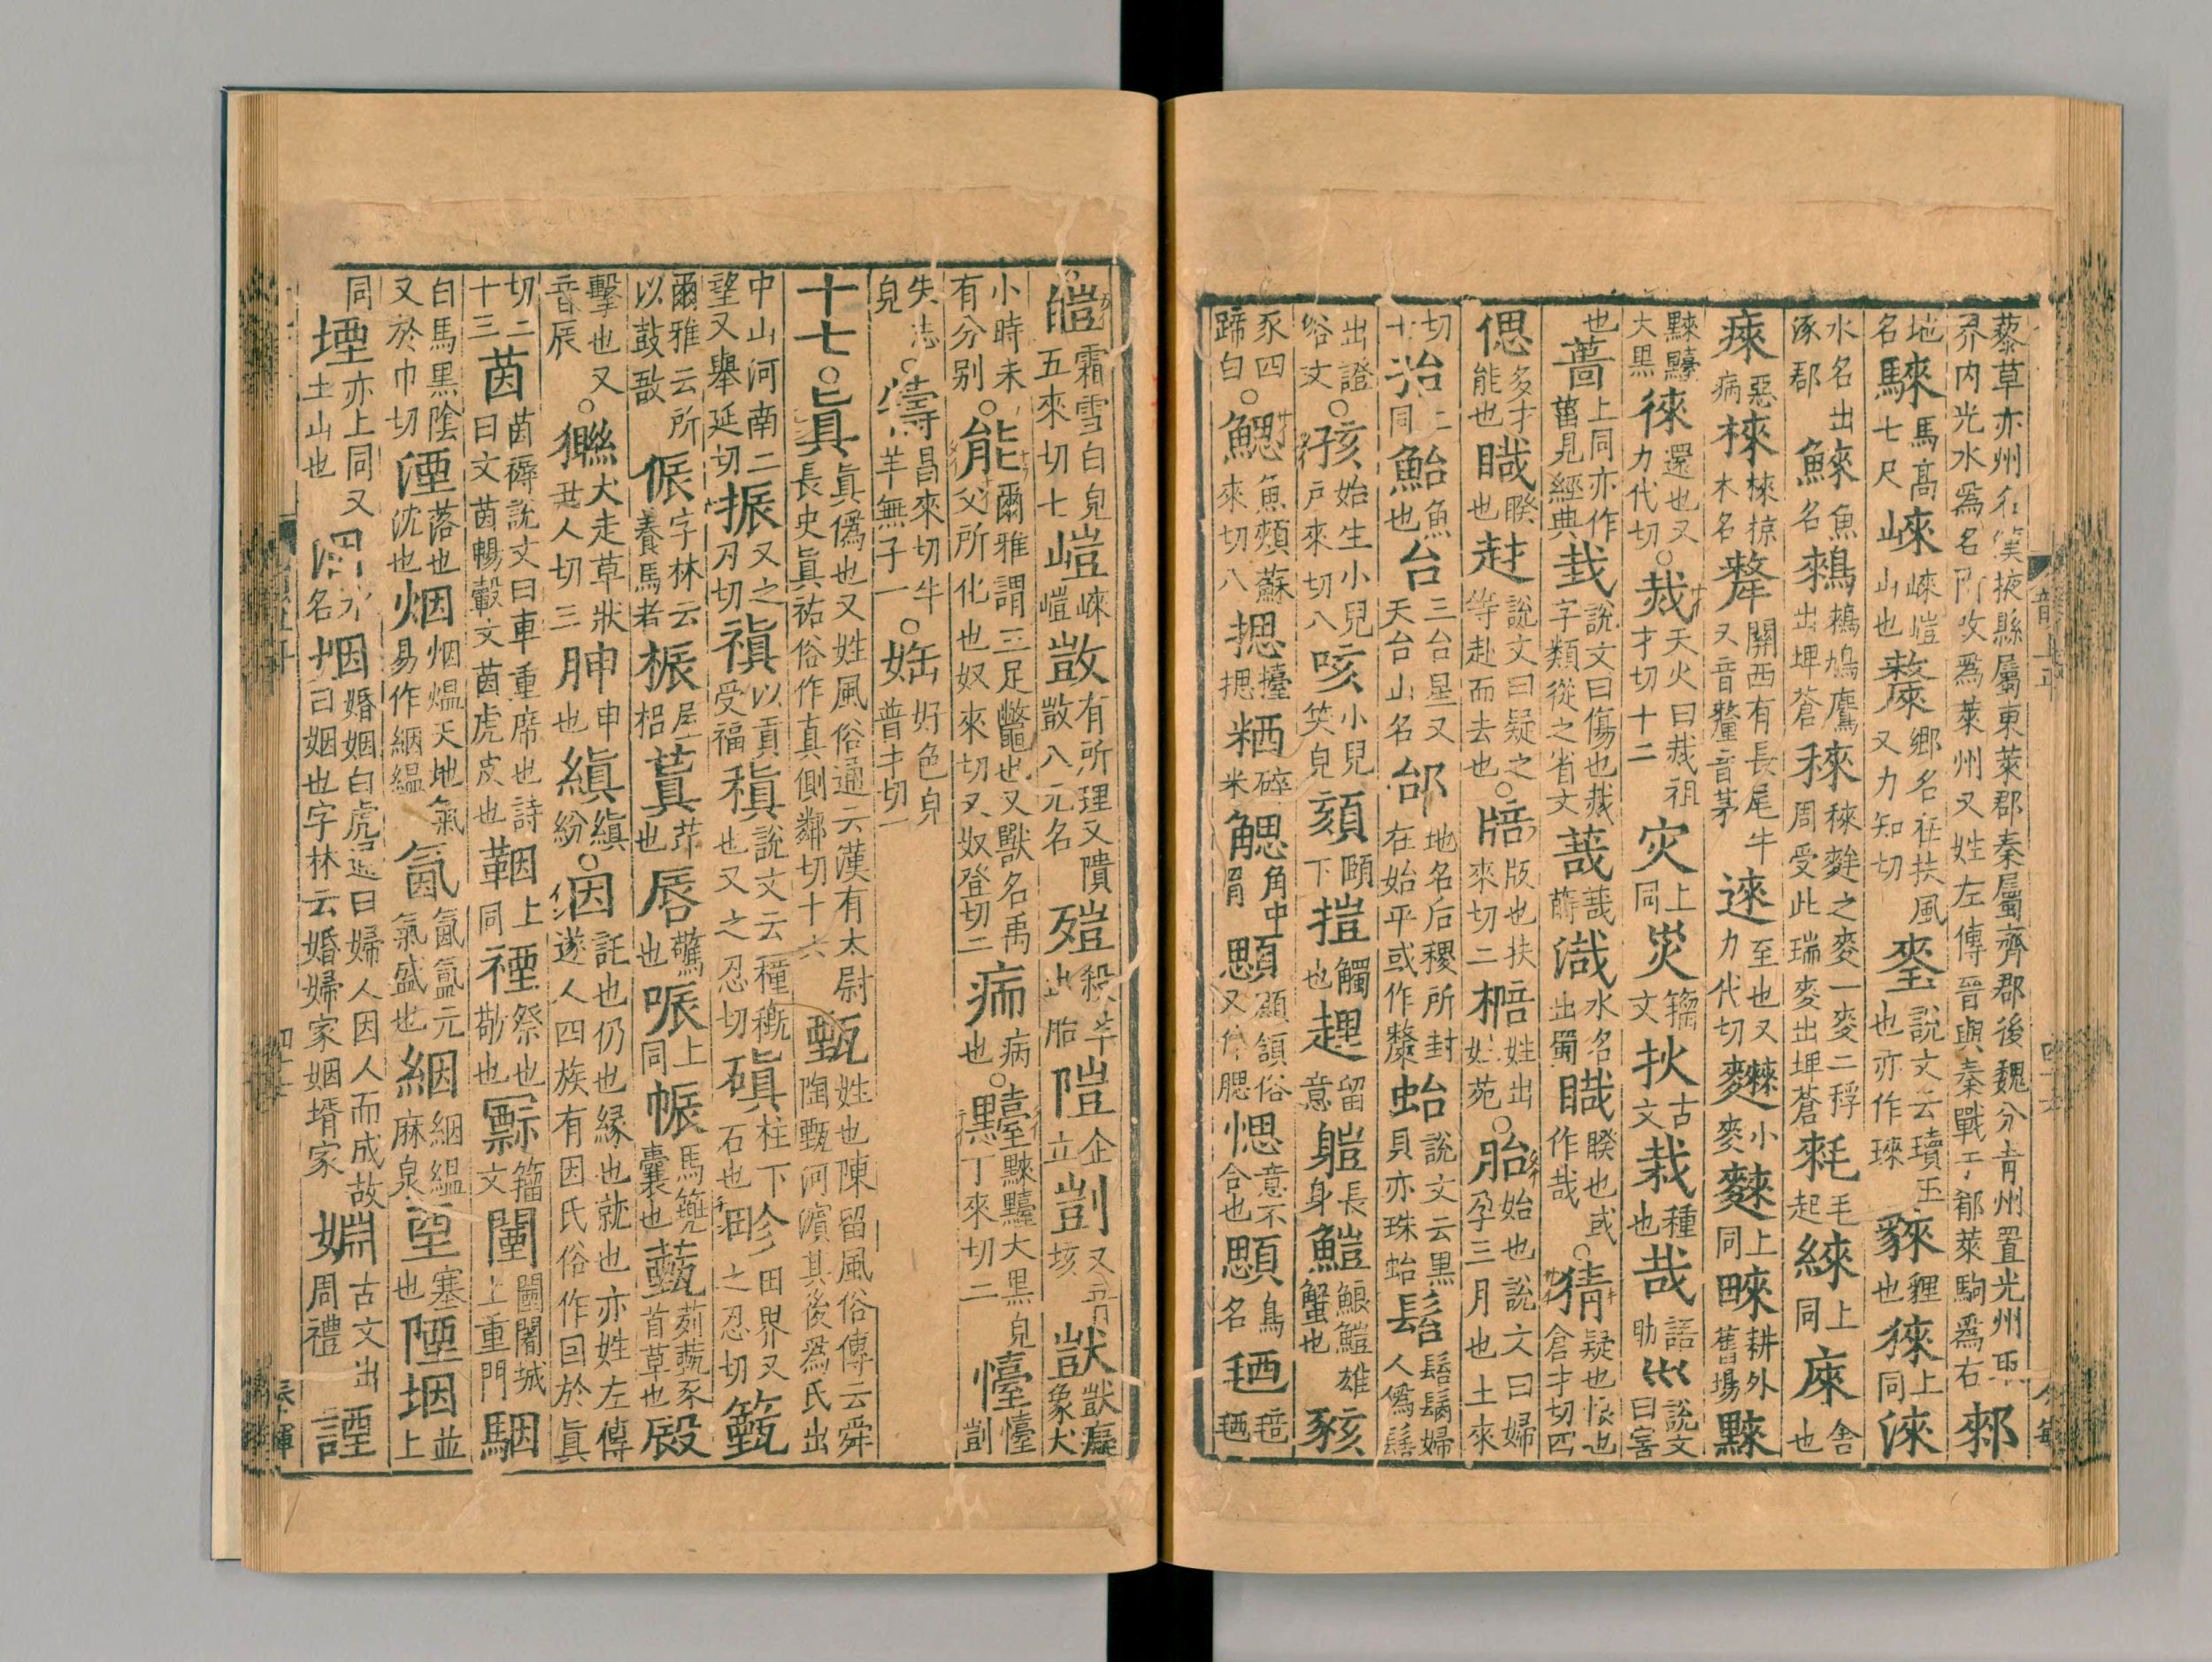 藜草亦州名漢掖縣屬東萊郡秦屬齊郡後魏分青州置光州取界內光水爲名隋改爲萊州又姓左傳晉與秦戰于郁萊駒爲右郲
地名騋馬高七尺崍崍嵦山也斄鄉名在扶風又力知切𤦃說文云瓄玉也亦作琜𧳟貍也猍上同淶
水名出涿郡鯠魚名鶆鶆鳩鷹出埤蒼䅘䅘麰之麥一麥二稃周受此瑞麥出埤蒼𣯛毛起䋱上同庲舍也
𤷘惡病棶棶椋木名犛關西有長尾牛又音氂音茅逨至也又力代切䴭小麥麳上同㽝耕外舊場𪑚
𪑚𪒴大黑徠還也又力代切○烖天火曰烖祖才切十二灾上同災籀文㧉古文栽種也哉語助巛說文曰害
也葘上同亦作菑見經典𢦏說文曰傷也烖字類從之省文䔂䔂蒔渽水名出蜀䁎睽也或作哉○猜疑也恨也倉才切四
偲多才能也䁎睽也䞗說文曰疑之等赴而去也○㿭版也扶來切二棓姓出姓苑○胎始也說文曰婦孕三月也土來
切十二冶上同鮐魚也台三台星又天台山名邰地名后稷所封在始平或作斄蛤說文云黑貝亦珠蛤䰄䰄髵婦人僞䰄
出證俗文○孩始生小兒戶來切八咳小兒笑皃頦頤下㨟觸也䞨留意䠽長身䱺鯷䱺雄蟹也豥
豕四蹄白○鰓魚頰蘇來切八揌擡揌粞碎米䚡角中䚡顋顋頷俗又作腮愢意不合也䰄鳥名毸毰毸
皚霜雪白皃五來切七嵦嵦崍敳有所理又隤敳八元名殪殺羊出胎隑企立剴又音垓獃獃癡象犬
小時未有分別○能爾雅謂三足鼈也又獸名禹父所化也奴來切又奴登切二㾍病也○𪒴𪑚𪒴大黑皃丁來切二懛懛剴
失志皃○犢昌來切牛羊無子一○㛅好色皃普才切一
十七○眞眞僞也又姓風俗通云漢有太尉長史眞祐俗作真側鄰切十六甄姓也陳留風俗傳云舜陶甄河濱其後爲氏出
中山河南二望又舉延切振又之刃切禛以真受福稹說文云種穊也又之忍切磌柱下石也畛田界又之忍切籈
爾雅云所以鼓敔侲字林云養馬者桭屋梠蒖茈也唇驚也㖘上同帪馬兜囊也薽茢薽豕首草也𣪁
擊也又音辰○獜犬走草狀丑人切三䏖申也縝縝紛○因託也仍也緣也就也亦姓左傳遂人四族有因氏俗作囙於眞
切二十三茵茵褥說文曰車重席也詩曰文茵暢轂文茵虎皮也鞇上同禋祭也敬也𥛿籀文闉闉闍城上重門駰
白馬黑陰又於巾切湮落也沈也烟烟熅天地氣易作絪縕氤氤氳元氣氣盛也絪絪縕麻枲垔塞也陻堙並上
同㙬亦上同又土山也洇水名姻婚姻白虎通曰婦人因人而成故曰姻也字林云婚婦家姻壻家婣古文出周禮諲